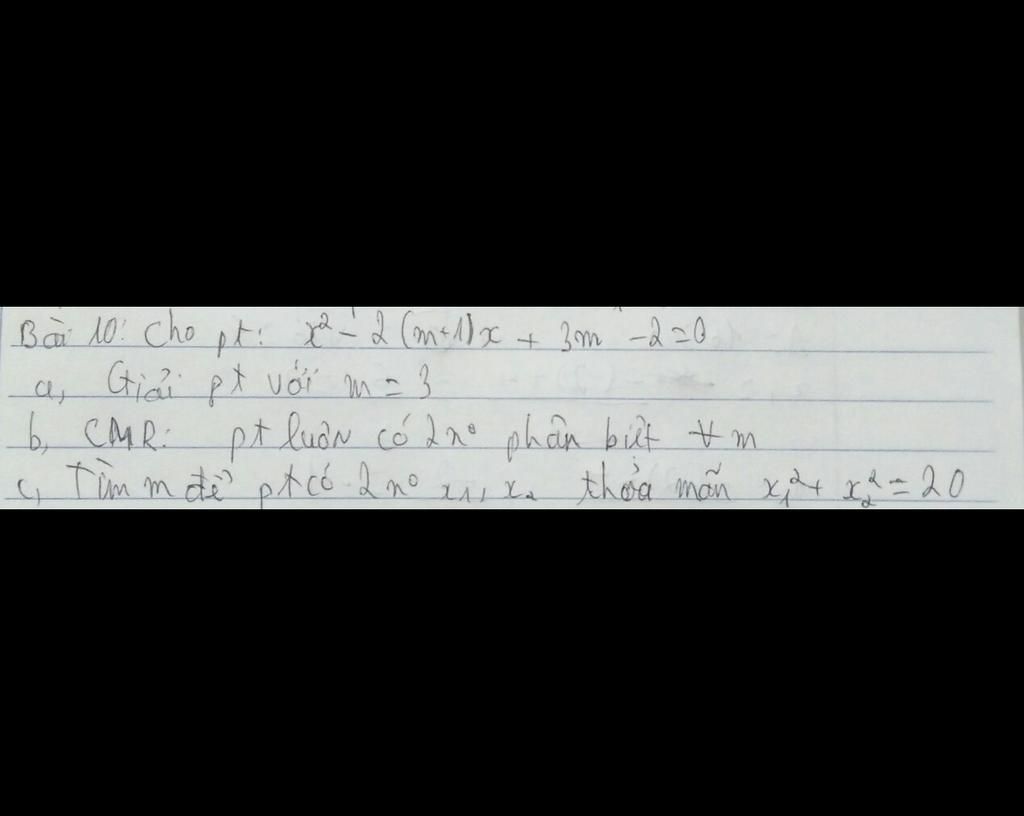 Bài 10: Cho pt: x² - 2(m+1)x + 3m - 2 = 0
a, Giải pt với m = 3
b, CMR: pt luôn có 2 n⁰ phân biệt ∀ m
c, Tìm m để pt có 2 n⁰ x₁, x₂ thỏa mãn x₁² + x₂² = 20